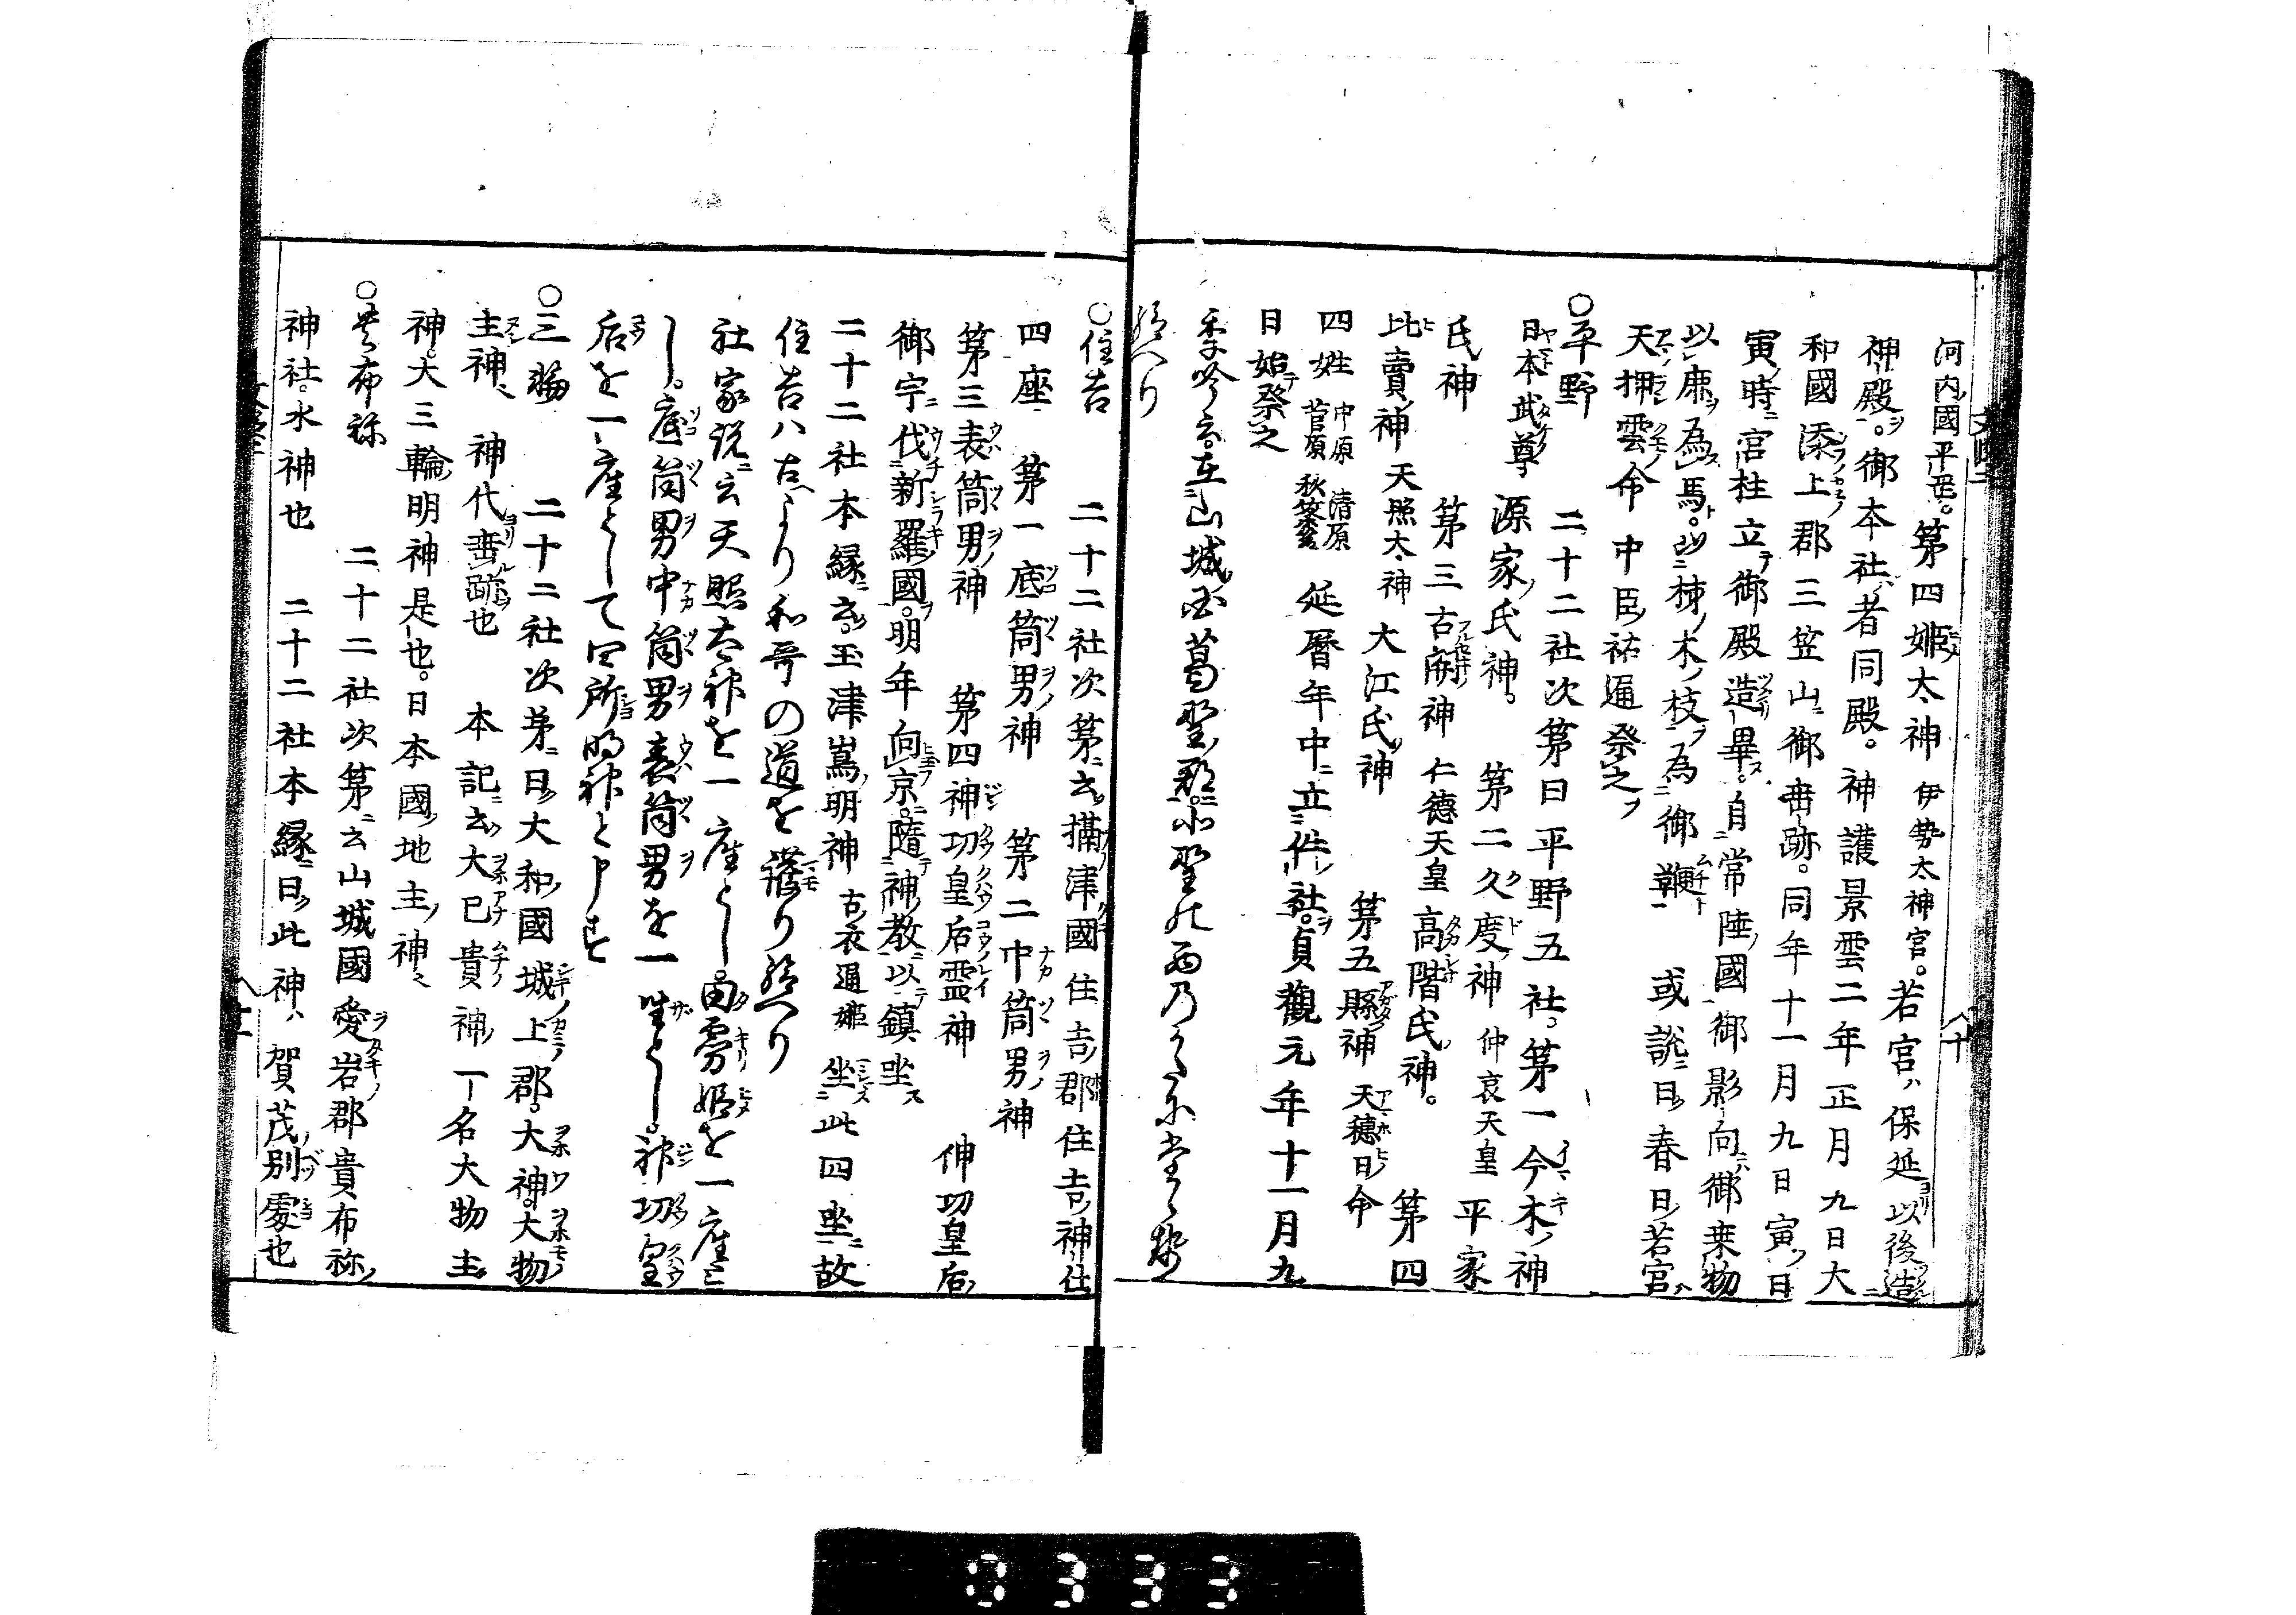 河内國平岡。第四姫太神 伊勢太神宮。若宮ハ保延以後造
神殿ヲ。御本社ハ者同殿。神護景雲二年正月九日大
和國添上郡三笠山ニ御垂跡。同年十一月九日寅ノ日
寅ノ時ニ宮柱立テ御殿造畢。自常陸國御影向ニハ御乗物
以鹿ヲ為馬ト。以柿ノ木ノ枝ヲ為御鞭ト 或説ニ曰春日若宮ハ
天押雲命 中臣祐通祭之ヲ
○平野 二十二社次第曰平野五社。第一今木ノ神
日本武尊 源家ノ氏神。 第二久度ノ神 仲哀天皇 平家
氏神 第三古開ノ神 仁徳天皇 高階氏ノ神。 第四
比賣ノ神 天照太神 大江氏ノ神 第五縣ノ神 天穂日ノ命
四姓 中原 清原 菅原 秋篠 延暦年中ニ立件ノ社ヲ。貞觀元年十一月九
日始テ祭之
季吟云在山城国葛野郡。
給へり
○住吉 二十二社次第ニ云攝津國住吉ノ郡住吉ノ神社
四座 第一底筒男ノ神 第二中筒男ノ神
第三表筒男ノ神 第四神功皇后霊神 神功皇后
御宇ニ代新羅國ヲ。明年向京ニ。隨テ神ノ教ニ以テ鎮坐ス
二十二社本縁ニ云玉津嶌ノ明神 古衣通姫 坐此四坐ニ故
住吉ハ古へより和哥の道を護り給へり
社家説ニ云天照太神を一座とし。田霧姫を一座と
し。底筒男中筒男表筒男を一坐とし。神功皇
后を一座として四所明神と申す
○三輪 二十二社次第ニ曰大和ノ國城ノ上ノ郡。大神。大物
主神 神代垂跡也 本記ニ云大己貴ノ神ノ一名大物主ノ
神。大三輪明神是也。日本國ノ地主ノ神
○貴布祢 二十二社次第ニ云山城國愛宕ノ郡貴布祢ノ
神社。水神也 二十二社本縁ニ曰此神ハ賀茂ノ別處也